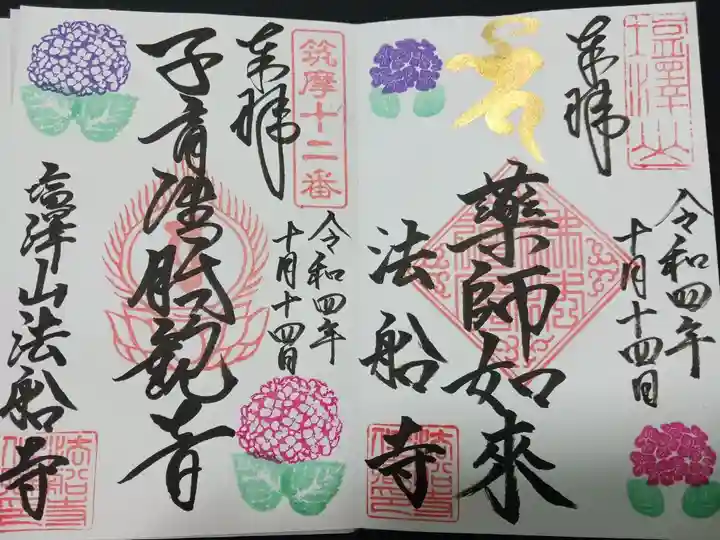 塩澤山
奉拝
令和四年
十月十四日
薬師如来
法船寺
筑摩十二番
奉拝
令和四年
十月十四日
子育
観音
塩澤山法船寺
法船寺